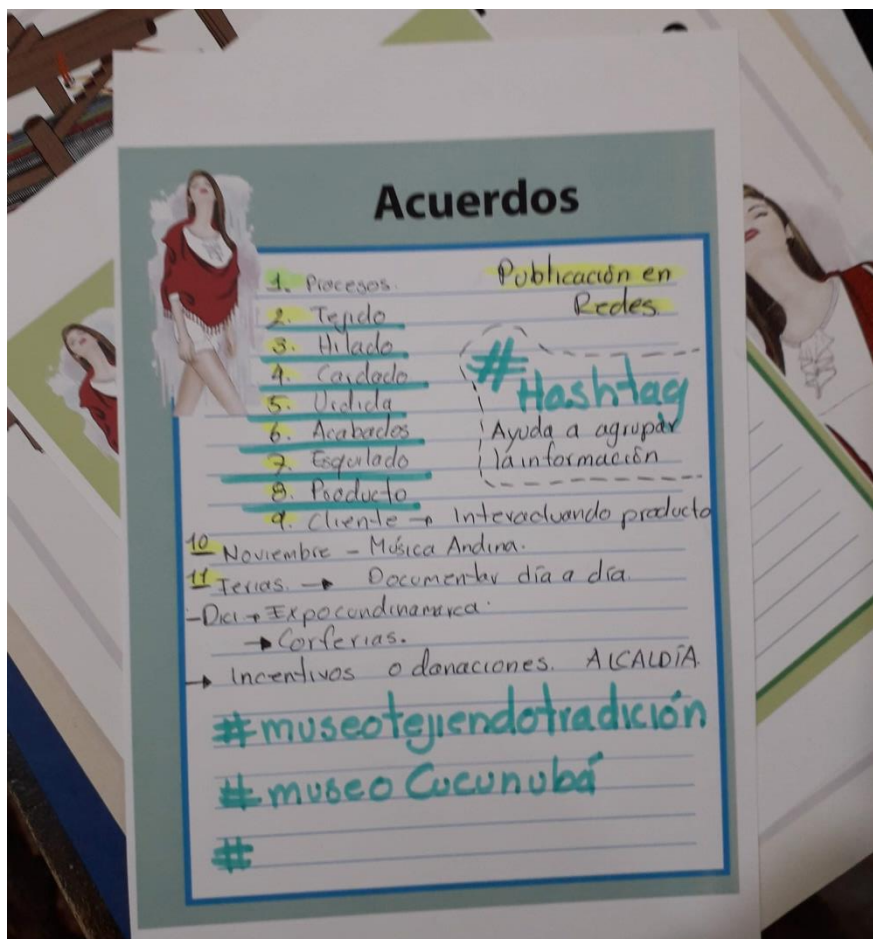 Acuerdos
1. Procesos.
2. Tejido
3. Hilado
4. Cardado
5. Urdida
6. Acabados
7. Esquilado
8. Producto
9. Cliente → Interactuando producto
Publicación en
Redes.
# Hashtag
Ayuda a agrupar
la información
10 Noviembre - Música Andina.
11 Ferias. → Documentar día a día.
- Dici → Expocundinamarca.
→ Corferias.
→ Incentivos o donaciones. ALCALDÍA.
#museotejiendotradición
#museo Cucunubá
#